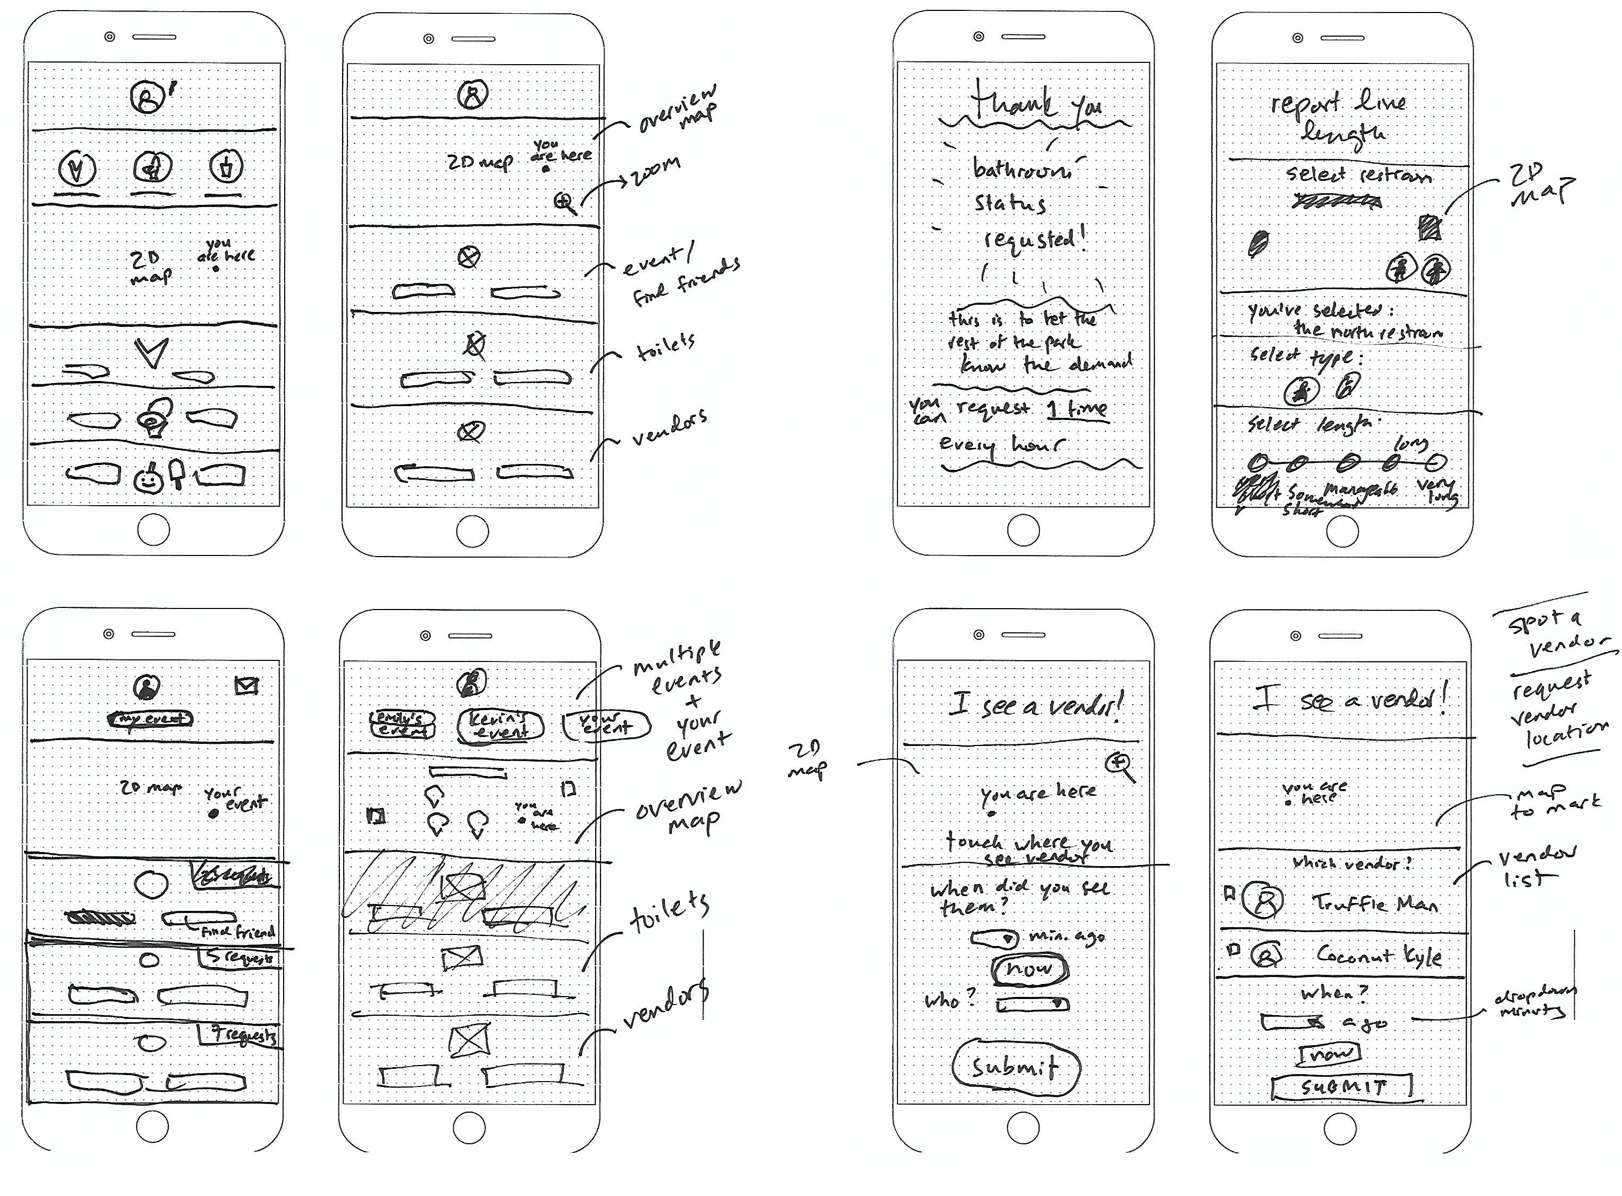 2D
map
you
are here
2D map
you
are here
overview
map
zoom
event/
find friends
toilets
vendors
thank you
bathroom
status
requsted!
this is to let the
rest of the park
know the demand
you can request 1 time
every hour
report line
length
select restram
2D
map
you've selected:
the north restram
select type:
select length:
long
somewhat
short
very
long
my event
2D map
your
event
find friend
5 requests
7 requests
emily's
event
kevin's
event
your
event
you
are
here
multiple
events
+
your
event
overview
map
toilets
vendors
2D
map
I see a vendor!
you are here
touch where you
see vendor
when did you see
them?
min. ago
now
who?
submit
I see a vendor!
you are
here
which vendor?
Truffle Man
Coconut Kyle
when?
ago
now
SUBMIT
spot a
vendor
request
vendor
location
map
to mark
vendor
list
dropdown
minutes